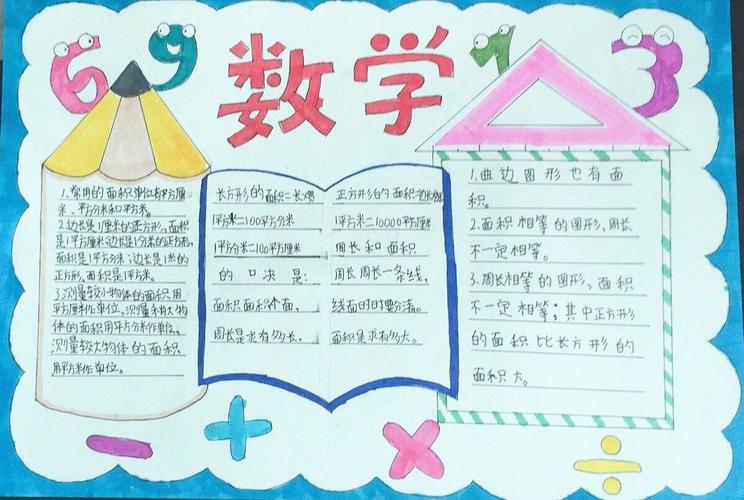 6 9 数学 7 3
1.常用的面积单位有平方厘
米、平方分米和平方米。
2.边长是1厘米的正方形,面积
是1平方厘米;边长是1分米的正方形,
面积是1平方分米;边长是1米的
正方形,面积是1平方米。
3.测量较小物体的面积用
平方厘米作单位,测量较大物
体的面积用平方分米作单位,
测量较大物体的面积
用平方米作单位。
长方形的面积=长×宽
1平方米=100平方分米
1平方分米=100平方厘米
的口决是:
面积面积个面,
周长是求有多长,
正方形的面积=边长×边长
1平方米=10000平方厘米
周长和面积
周长周长一条线,
线面时时要分清。
面积是求有多大。
1.曲边图形也有面
积。
2.面积相等的图形,周长
不一定相等。
3.周长相等的图形,面积
不一定相等;其中正方形
的面积比长方形的
面积大。
- + × ÷